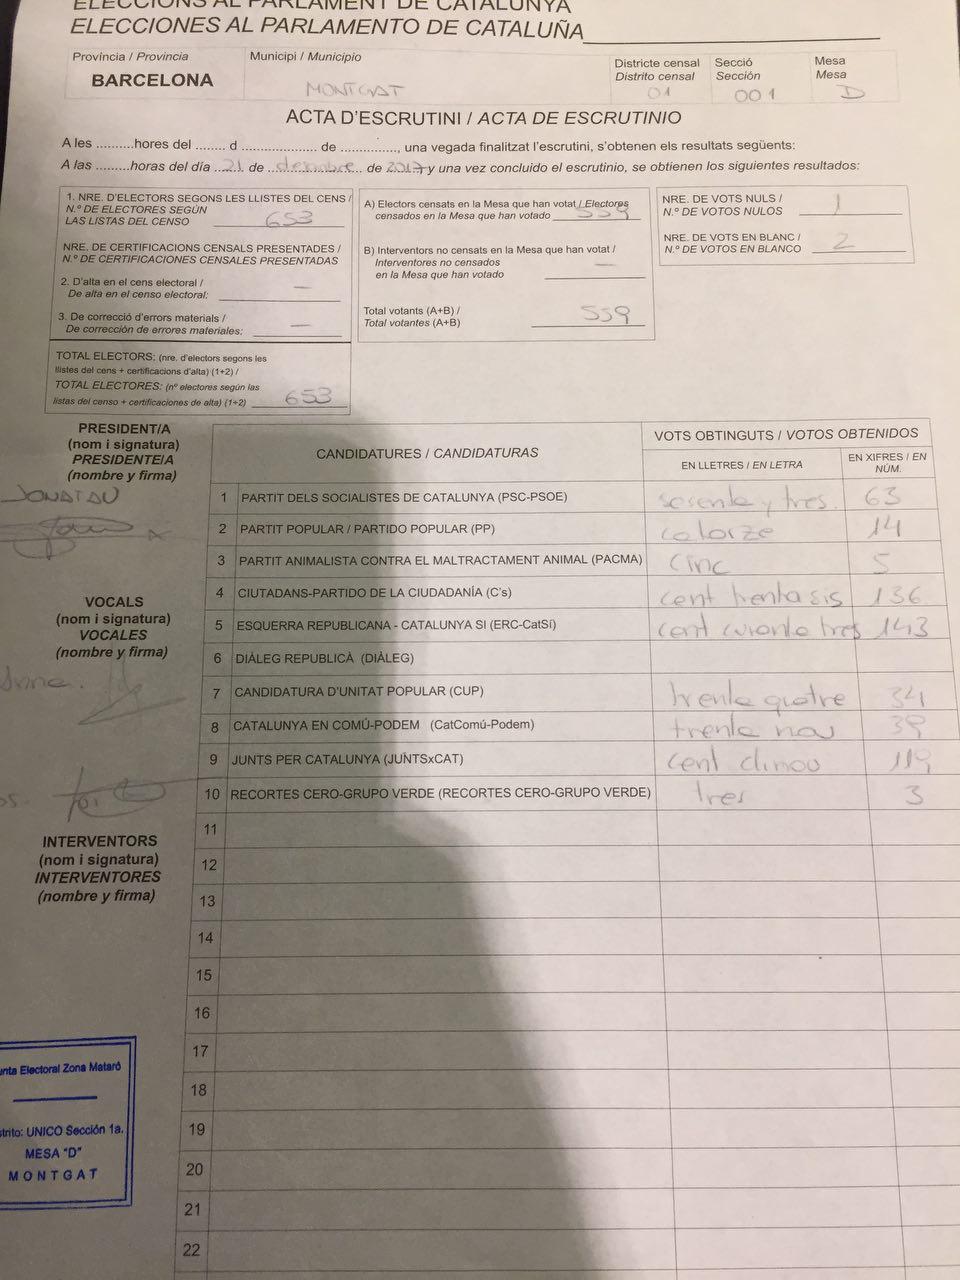 ELECCIONS AL PARLAMENT DE CATALUNYA
ELECCIONES AL PARLAMENTO DE CATALUÑA
Província / Provincia
BARCELONA
Municipi / Municipio
MONTGAT
Districte censal
Distrito censal
01
Secció
Sección
001
Mesa
Mesa
D
ACTA D'ESCRUTINI / ACTA DE ESCRUTINIO
A les ..........hores del ........ d ..................... de .............., una vegada finalitzat l'escrutini, s'obtenen els resultats següents:
A las ..........horas del día 21 de desembre de 2017 y una vez concluido el escrutinio, se obtienen los siguientes resultados:
1. NRE. D'ELECTORS SEGONS LES LLISTES DEL CENS /
N.º DE ELECTORES SEGÚN
LAS LISTAS DEL CENSO 653
NRE. DE CERTIFICACIONS CENSALS PRESENTADES /
N.º DE CERTIFICACIONES CENSALES PRESENTADAS
2. D'alta en el cens electoral /
De alta en el censo electoral: —
3. De correcció d'errors materials /
De corrección de errores materiales: —
TOTAL ELECTORS: (nre. d'electors segons les
llistes del cens + certificacions d'alta) (1+2) /
TOTAL ELECTORES: (nº electores según las
listas del censo + certificaciones de alta) (1+2) 653
A) Electors censats en la Mesa que han votat / Electores
censados en la Mesa que han votado 559
B) Interventors no censats en la Mesa que han votat /
Interventores no censados
en la Mesa que han votado —
Total votants (A+B) /
Total votantes (A+B) 559
NRE. DE VOTS NULS /
N.º DE VOTOS NULOS 1
NRE. DE VOTS EN BLANC /
N.º DE VOTOS EN BLANCO 2
PRESIDENT/A
(nom i signatura)
PRESIDENTE/A
(nombre y firma)
JONATAN
VOCALS
(nom i signatura)
VOCALES
(nombre y firma)
INTERVENTORS
(nom i signatura)
INTERVENTORES
(nombre y firma)
CANDIDATURES / CANDIDATURAS
VOTS OBTINGUTS / VOTOS OBTENIDOS
EN LLETRES / EN LETRA
EN XIFRES / EN NÚM.
1 PARTIT DELS SOCIALISTES DE CATALUNYA (PSC-PSOE) sesenta y tres. 63
2 PARTIT POPULAR / PARTIDO POPULAR (PP) catorze 14
3 PARTIT ANIMALISTA CONTRA EL MALTRACTAMENT ANIMAL (PACMA) cinc 5
4 CIUTADANS-PARTIDO DE LA CIUDADANÍA (C's) cent trenta sis 136
5 ESQUERRA REPUBLICANA - CATALUNYA SI (ERC-CatSí) cent curanta tres 143
6 DIÀLEG REPUBLICÀ (DIÀLEG)
7 CANDIDATURA D'UNITAT POPULAR (CUP) trenta quatre 34
8 CATALUNYA EN COMÚ-PODEM (CatComú-Podem) trenta nou 39
9 JUNTS PER CATALUNYA (JUNTSxCAT) cent dinou 119
10 RECORTES CERO-GRUPO VERDE (RECORTES CERO-GRUPO VERDE) tres 3
11
12
13
14
15
16
17
18
19
20
21
22
Electoral Zona Mataró
UNICO Sección 1a.
MESA "D"
MONTGAT